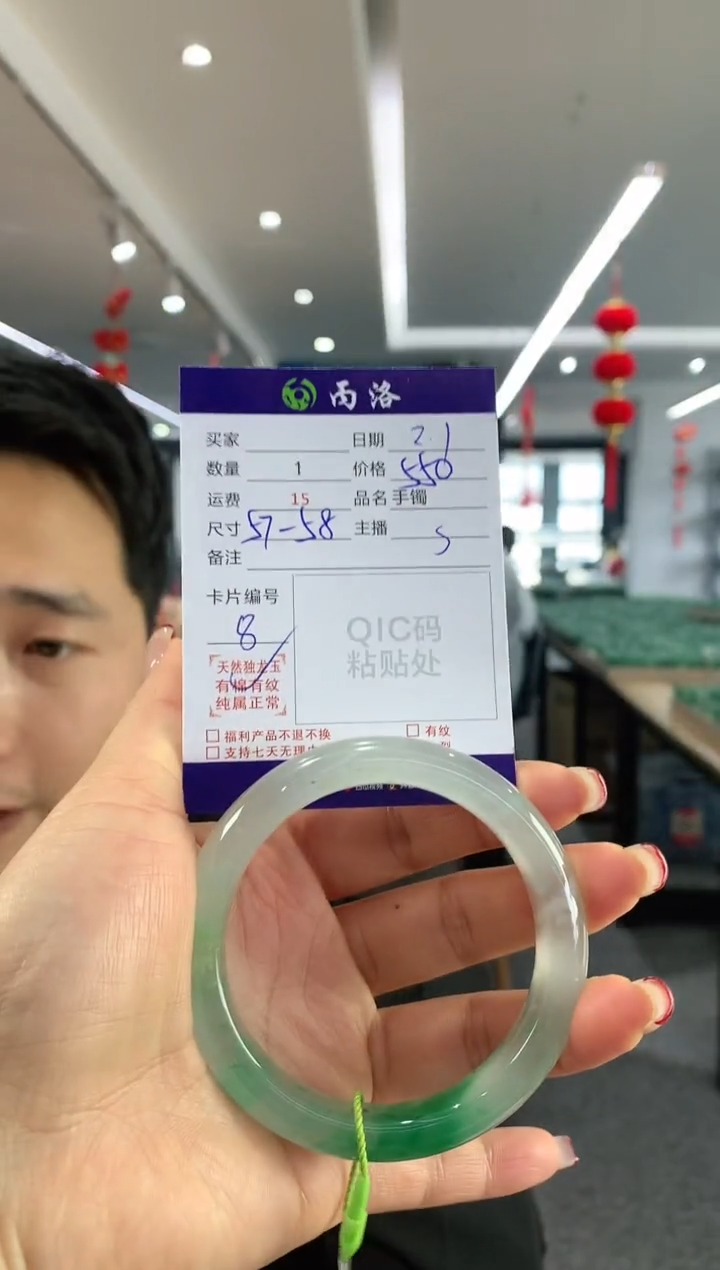 丙洛
买家 日期 2.1
数量 1 价格 550
运费 15 品名 手镯
尺寸 57-58 主播 S
备注
卡片编号
8
QIC码
粘贴处
天然独龙玉
有棉有纹
纯属正常
福利产品不退不换 有纹
支持七天无理由